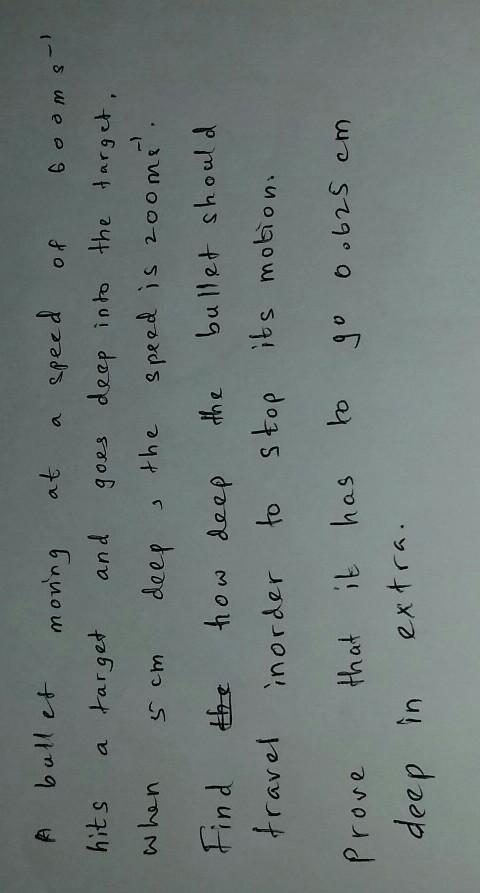 A bullet moving at a speed of 600ms⁻¹
hits a target and goes deep into the target.
When 5 cm deep, the speed is 200ms⁻¹.
Find ~~the~~ how deep the bullet should
travel inorder to stop its motion.
Prove that it has to go 0.625 cm
deep in extra.